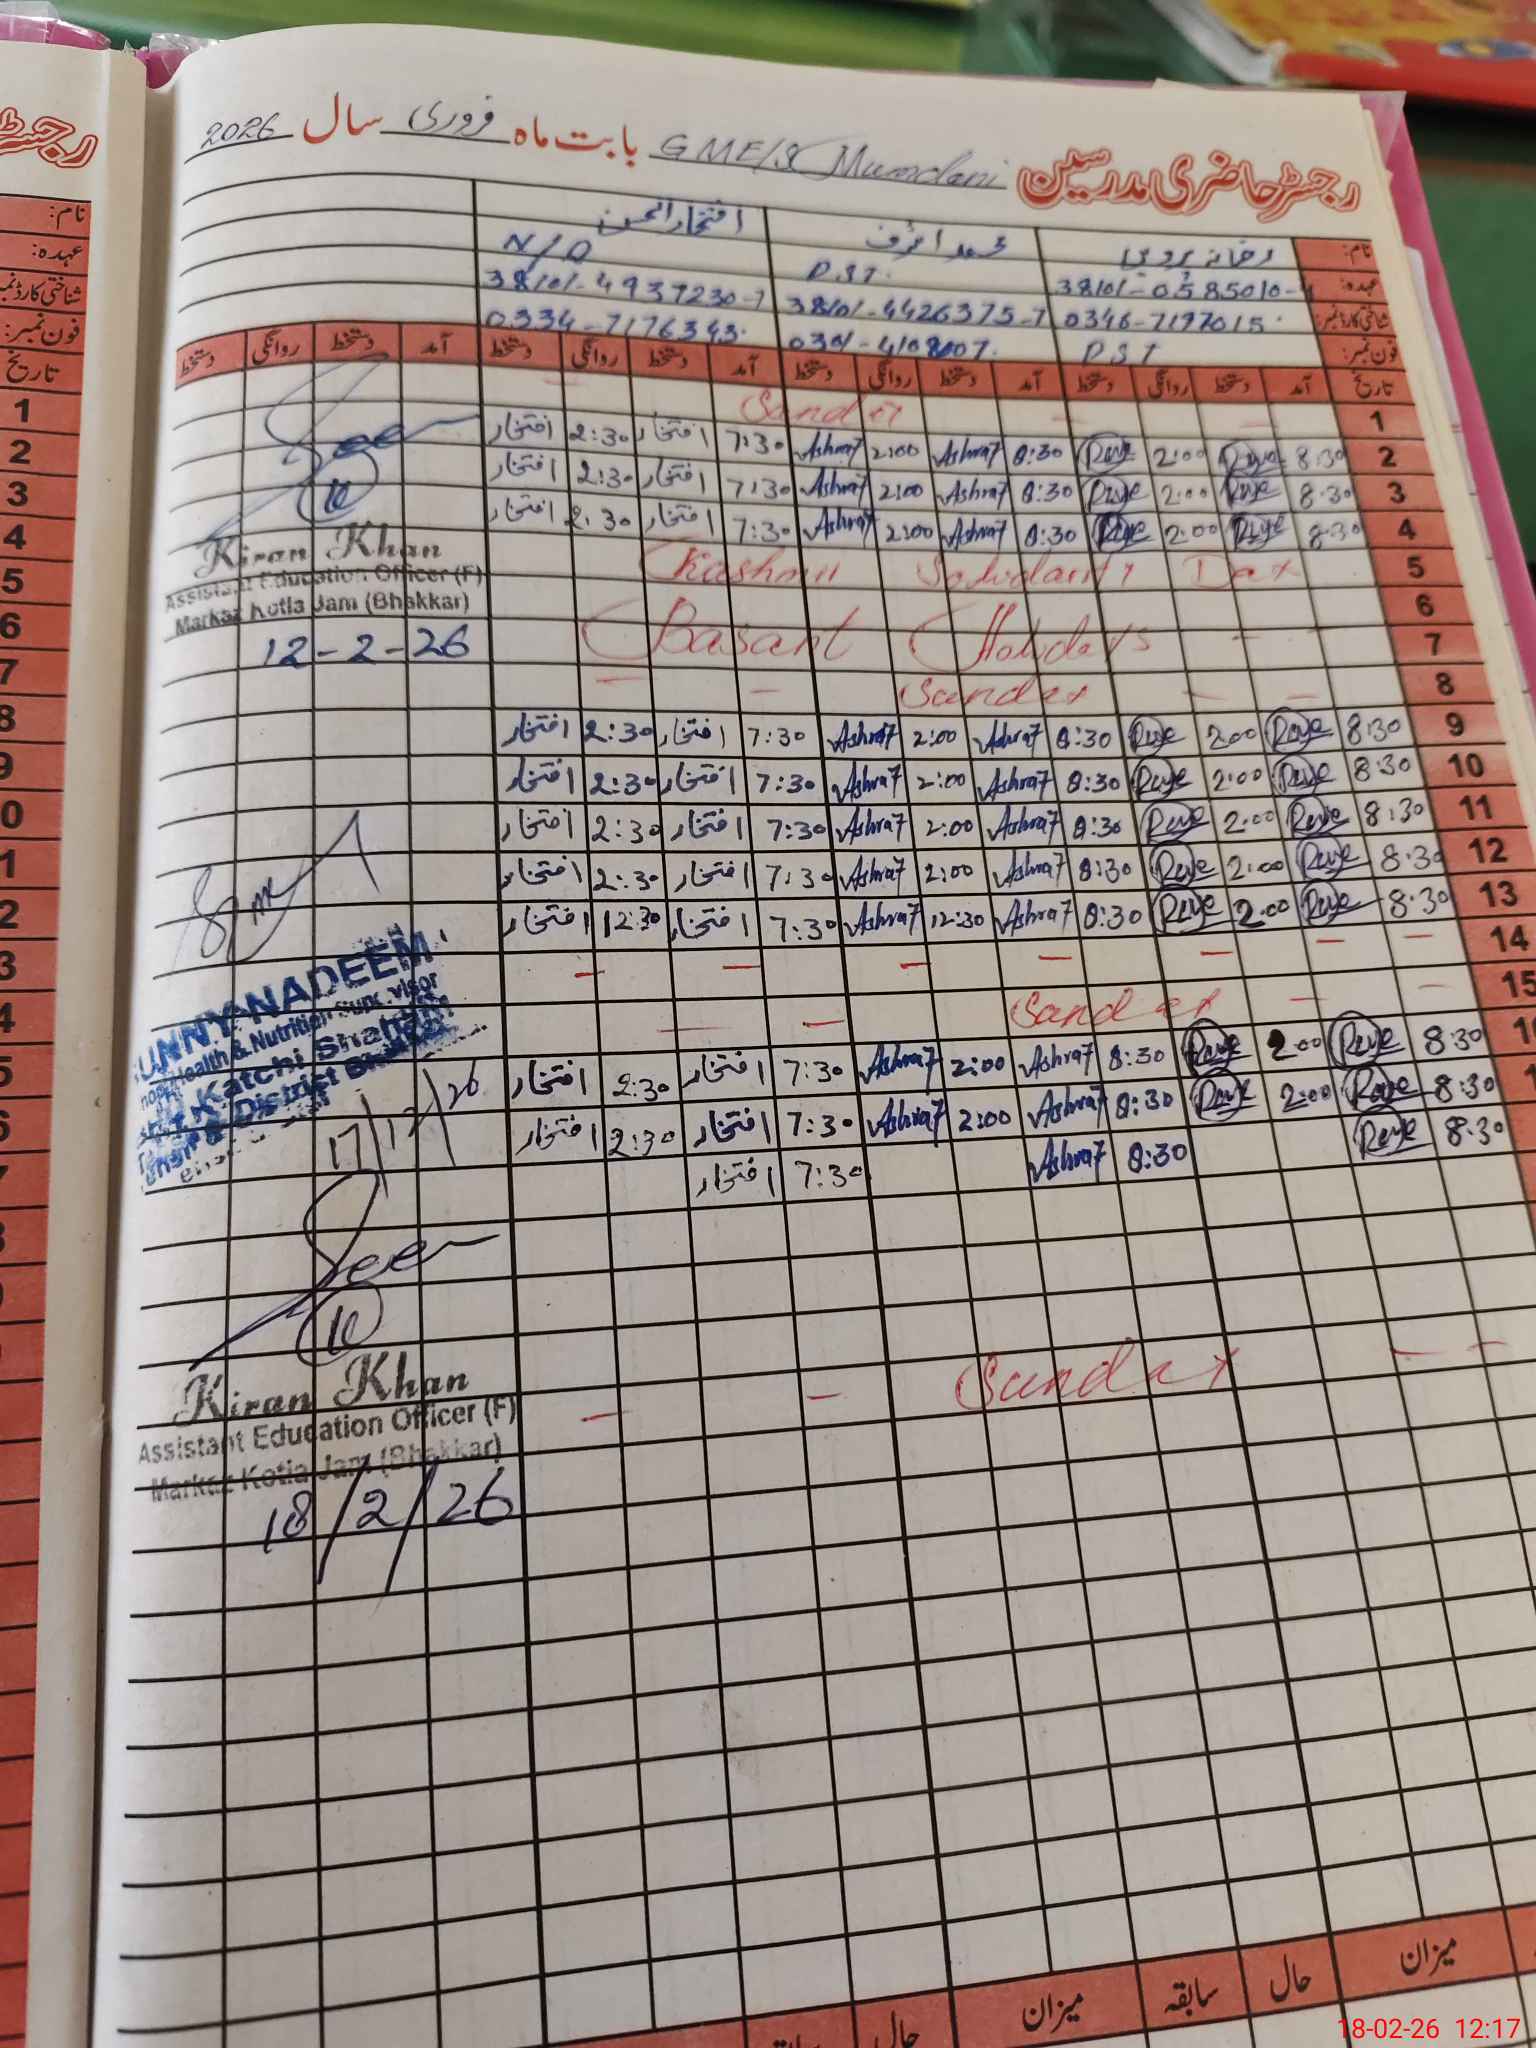 رجسٹر حاضری مدرسین GME/S Mumdani بابت ماہ فروری سال 2026
نام: محمد اشرف افتخار الحسن
عہدہ: P.S.T. N/Q
شناختی کارڈ نمبر: 38101-4426375-7 38101-4937230-7
فون نمبر: 0346-7197015 0334-7176343
P.S.T
تاریخ آمد دستخط روانگی دستخط آمد دستخط روانگی دستخط آمد دستخط روانگی دستخط آمد دستخط روانگی دستخط
1
2 8:30 Raye 2:00 Raye 8:30 Ashraf 2:00 Ashraf 7:30 افتخار 2:30 افتخار
3 8:30 Raye 2:00 Raye 8:30 Ashraf 2:00 Ashraf 7:30 افتخار 2:30 افتخار
4 8:30 Raye 2:00 Raye 8:30 Ashraf 2:00 Ashraf 7:30 افتخار 2:30 افتخار
5 Kashmir Solidarity Day
6
7 Basant Holidays
8 Sunday
9 8:30 Raye 2:00 Raye 8:30 Ashraf 2:00 Ashraf 7:30 افتخار 2:30 افتخار
10 8:30 Raye 2:00 Raye 8:30 Ashraf 2:00 Ashraf 7:30 افتخار 2:30 افتخار
11 8:30 Raye 2:00 Raye 8:30 Ashraf 2:00 Ashraf 7:30 افتخار 2:30 افتخار
12 8:30 Raye 2:00 Raye 8:30 Ashraf 2:00 Ashraf 7:30 افتخار 2:30 افتخار
13 8:30 Raye 2:00 Raye 8:30 Ashraf 12:30 Ashraf 7:30 افتخار 12:30 افتخار
14
15 Sunday
8:30 Raye 2:00 Raye 8:30 Ashraf 2:00 Ashraf 7:30 افتخار 2:30 افتخار
8:30 Raye 2:00 Raye 8:30 Ashraf 2:00 Ashraf 7:30 افتخار 2:30 افتخار
8:30 Raye 8:30 Ashraf 7:30 افتخار
Sunday
See
Kiran Khan
Assistant Education Officer (F)
Markaz Kotla Jam (Bhakkar)
12-2-26
SUNNY NADEEM
Health & Nutrition Supervisor
Katchi Shahani
District Bhakkar
17/2/26
See
Kiran Khan
Assistant Education Officer (F)
Markaz Kotla Jam (Bhakkar)
18/2/26
میزان حال سابقہ میزان حال
نام:
عہدہ:
فون نمبر:
تاریخ
1
2
3
4
5
6
7
8
18-02-26 12:17